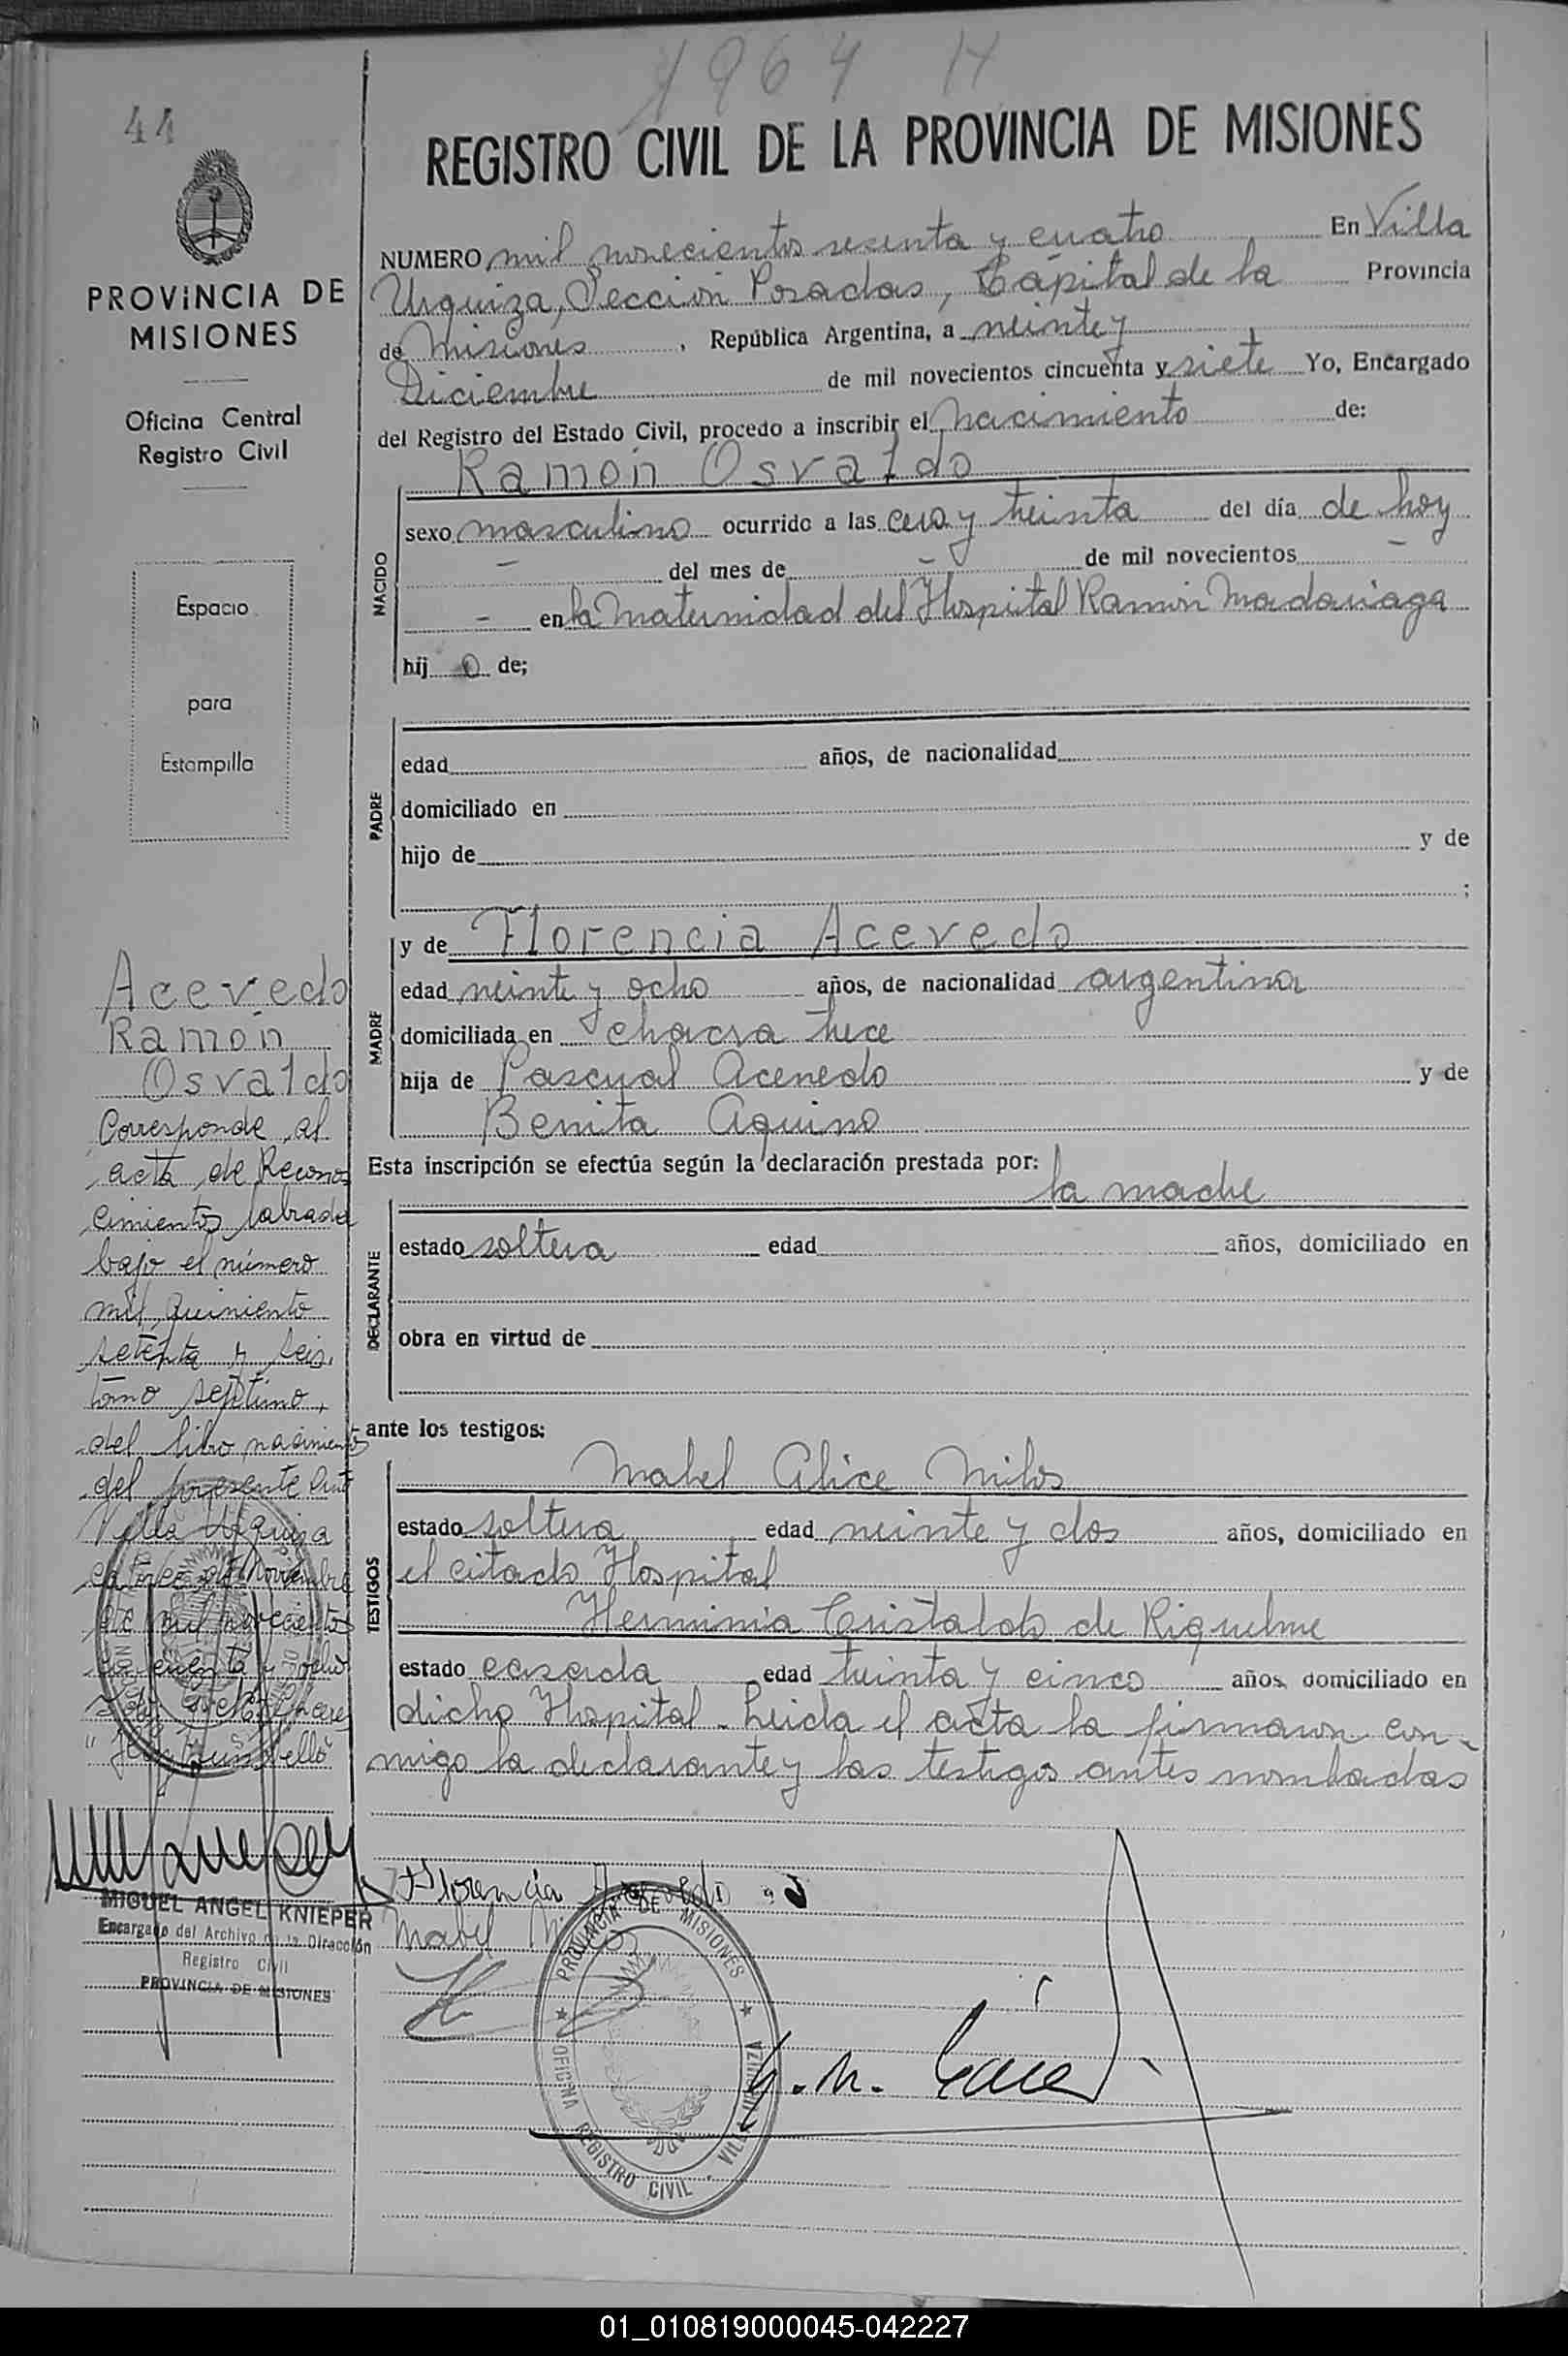 1964 H
44
REGISTRO CIVIL DE LA PROVINCIA DE MISIONES
PROVINCIA DE
MISIONES
Oficina Central
Registro Civil
Espacio
para
Estampilla
NUMERO mil novecientos sesenta y cuatro En Villa
Urquiza, Sección Posadas, Capital de la Provincia
de Misiones , República Argentina, a veinte y
Diciembre de mil novecientos cincuenta y siete Yo, Encargado
del Registro del Estado Civil, procedo a inscribir el nacimiento de:
Ramón Osvaldo
NACIDO
sexo masculino ocurrido a las cero y treinta del día de hoy
- del mes de - de mil novecientos -
- en la Maternidad del Hospital Ramón Madariaga
hij o de;
PADRE
edad años, de nacionalidad
domiciliado en
hijo de y de
;
MADRE
y de Florencia Acevedo
edad veinte y ocho años, de nacionalidad argentina
domiciliada en chacra trece
hija de Pascual Acevedo y de
Benita Aquino
Esta inscripción se efectúa según la declaración prestada por:
la madre
DECLARANTE
estado soltera edad años, domiciliado en
obra en virtud de
ante los testigos:
TESTIGOS
Mabel Alice Milos
estado soltera edad veinte y dos años, domiciliado en
el citado Hospital
Herminia Cristaldo de Riquelme
estado casada edad treinta y cinco años, domiciliado en
dicho Hospital. Leida el acta la firmaron con-
migo la declarante y las testigos antes nombradas
Acevedo
Ramón
Osvaldo
Corresponde al
acta de Recono
cimientos labrada
bajo el número
mil quiniento
setenta y seis,
tomo septimo,
del libro nacimiento
del presente
Villa Urquiza
catorce de Noviembre
de mil novecientos
cincuenta y ocho
Hay un sello"
MIGUEL ANGEL KNIEPER
Encargado del Archivo de la Dirección
Registro Civil
PROVINCIA DE MISIONES
Florencia Acevedo
Mabel Milos
PROVINCIA DE MISIONES
OFICINA REGISTRO CIVIL . VILLA URQUIZA
01_010819000045-042227